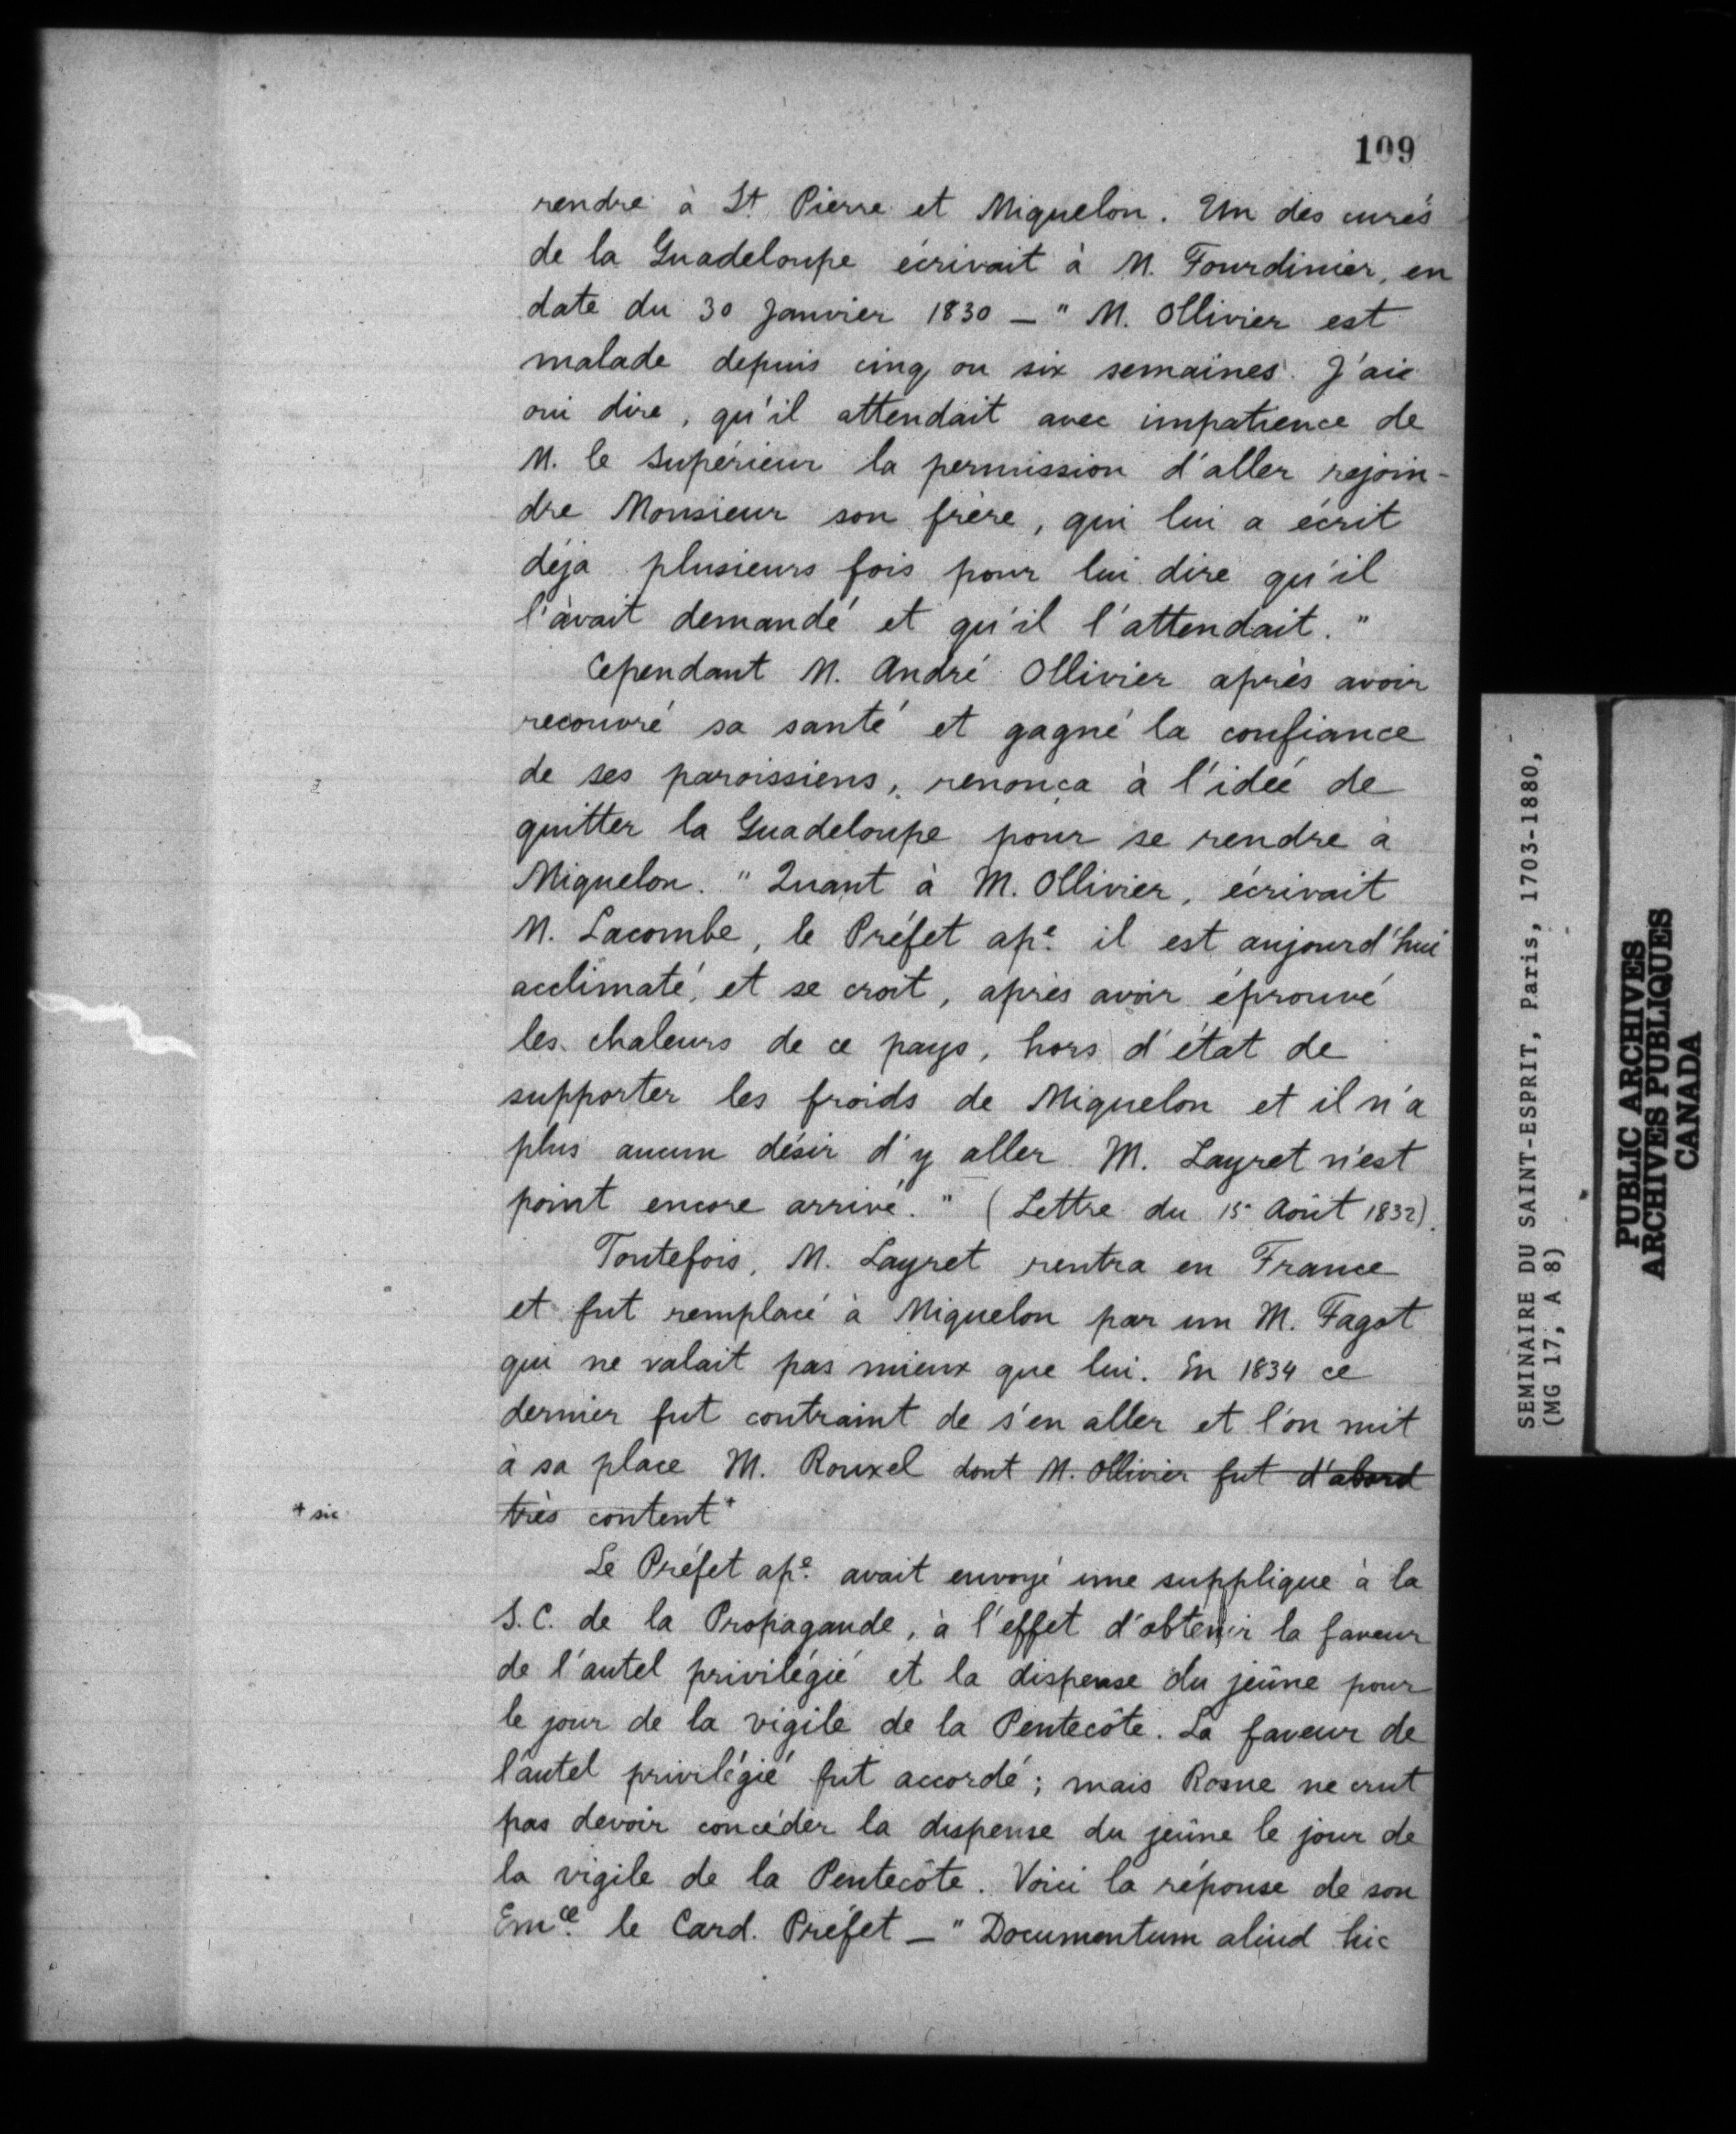 109
rendre à St Pierre et Miquelon. Un des curés
de la Guadeloupe écrivait à M. Fourdinier, en
date du 30 Janvier 1830 — " M. Ollivier est
malade depuis cinq ou six semaines. J'aie
oui dire, qu'il attendait avec impatience de
M. le Supérieur la permission d'aller rejoin-
dre Monsieur son frère, qui lui a écrit
déja plusieurs fois pour lui dire qu'il
l'avait demandé et qu'il l'attendait. "
Cependant M. André Ollivier après avoir
recouvré sa santé et gagné la confiance
de ses paroissiens, renonça à l'idée de
quitter la Guadeloupe pour se rendre à
Miquelon. " Quant à M. Ollivier, écrivait
M. Lacombe, le Préfet ape. il est aujourd'hui
acclimaté, et se croit, après avoir éprouvé
les chaleurs de ce pays, hors d'état de
supporter les froids de Miquelon et il n'a
plus aucun désir d'y aller. M. Layret n'est
point encore arrivé. " (Lettre du 15 Août 1832).
Toutefois, M. Layret rentra en France
et fut remplacé à Miquelon par un M. Fagot
qui ne valait pas mieux que lui. En 1834 ce
dernier fut contraint de s'en aller et l'on mit
à sa place M. Rouxel dont M. Ollivier fut d'abord
très content +
+ sic
Le Préfet ape. avait envoyé une supplique à la
S.C. de la Propagande, à l'effet d'obtenir la faveur
de l'autel privilégié et la dispense du jeûne pour
le jour de la vigile de la Pentecôte. La faveur de
l'autel privilégié fut accordé; mais Rome ne crut
pas devoir concéder la dispense du jeûne le jour de
la vigile de la Pentecôte. Voici la réponse de son
Emce. le Card. Préfet — " Documentum aliud hic
SEMINAIRE DU SAINT-ESPRIT, Paris, 1703-1880,
(MG 17, A 8)
PUBLIC ARCHIVES
ARCHIVES PUBLIQUES
CANADA